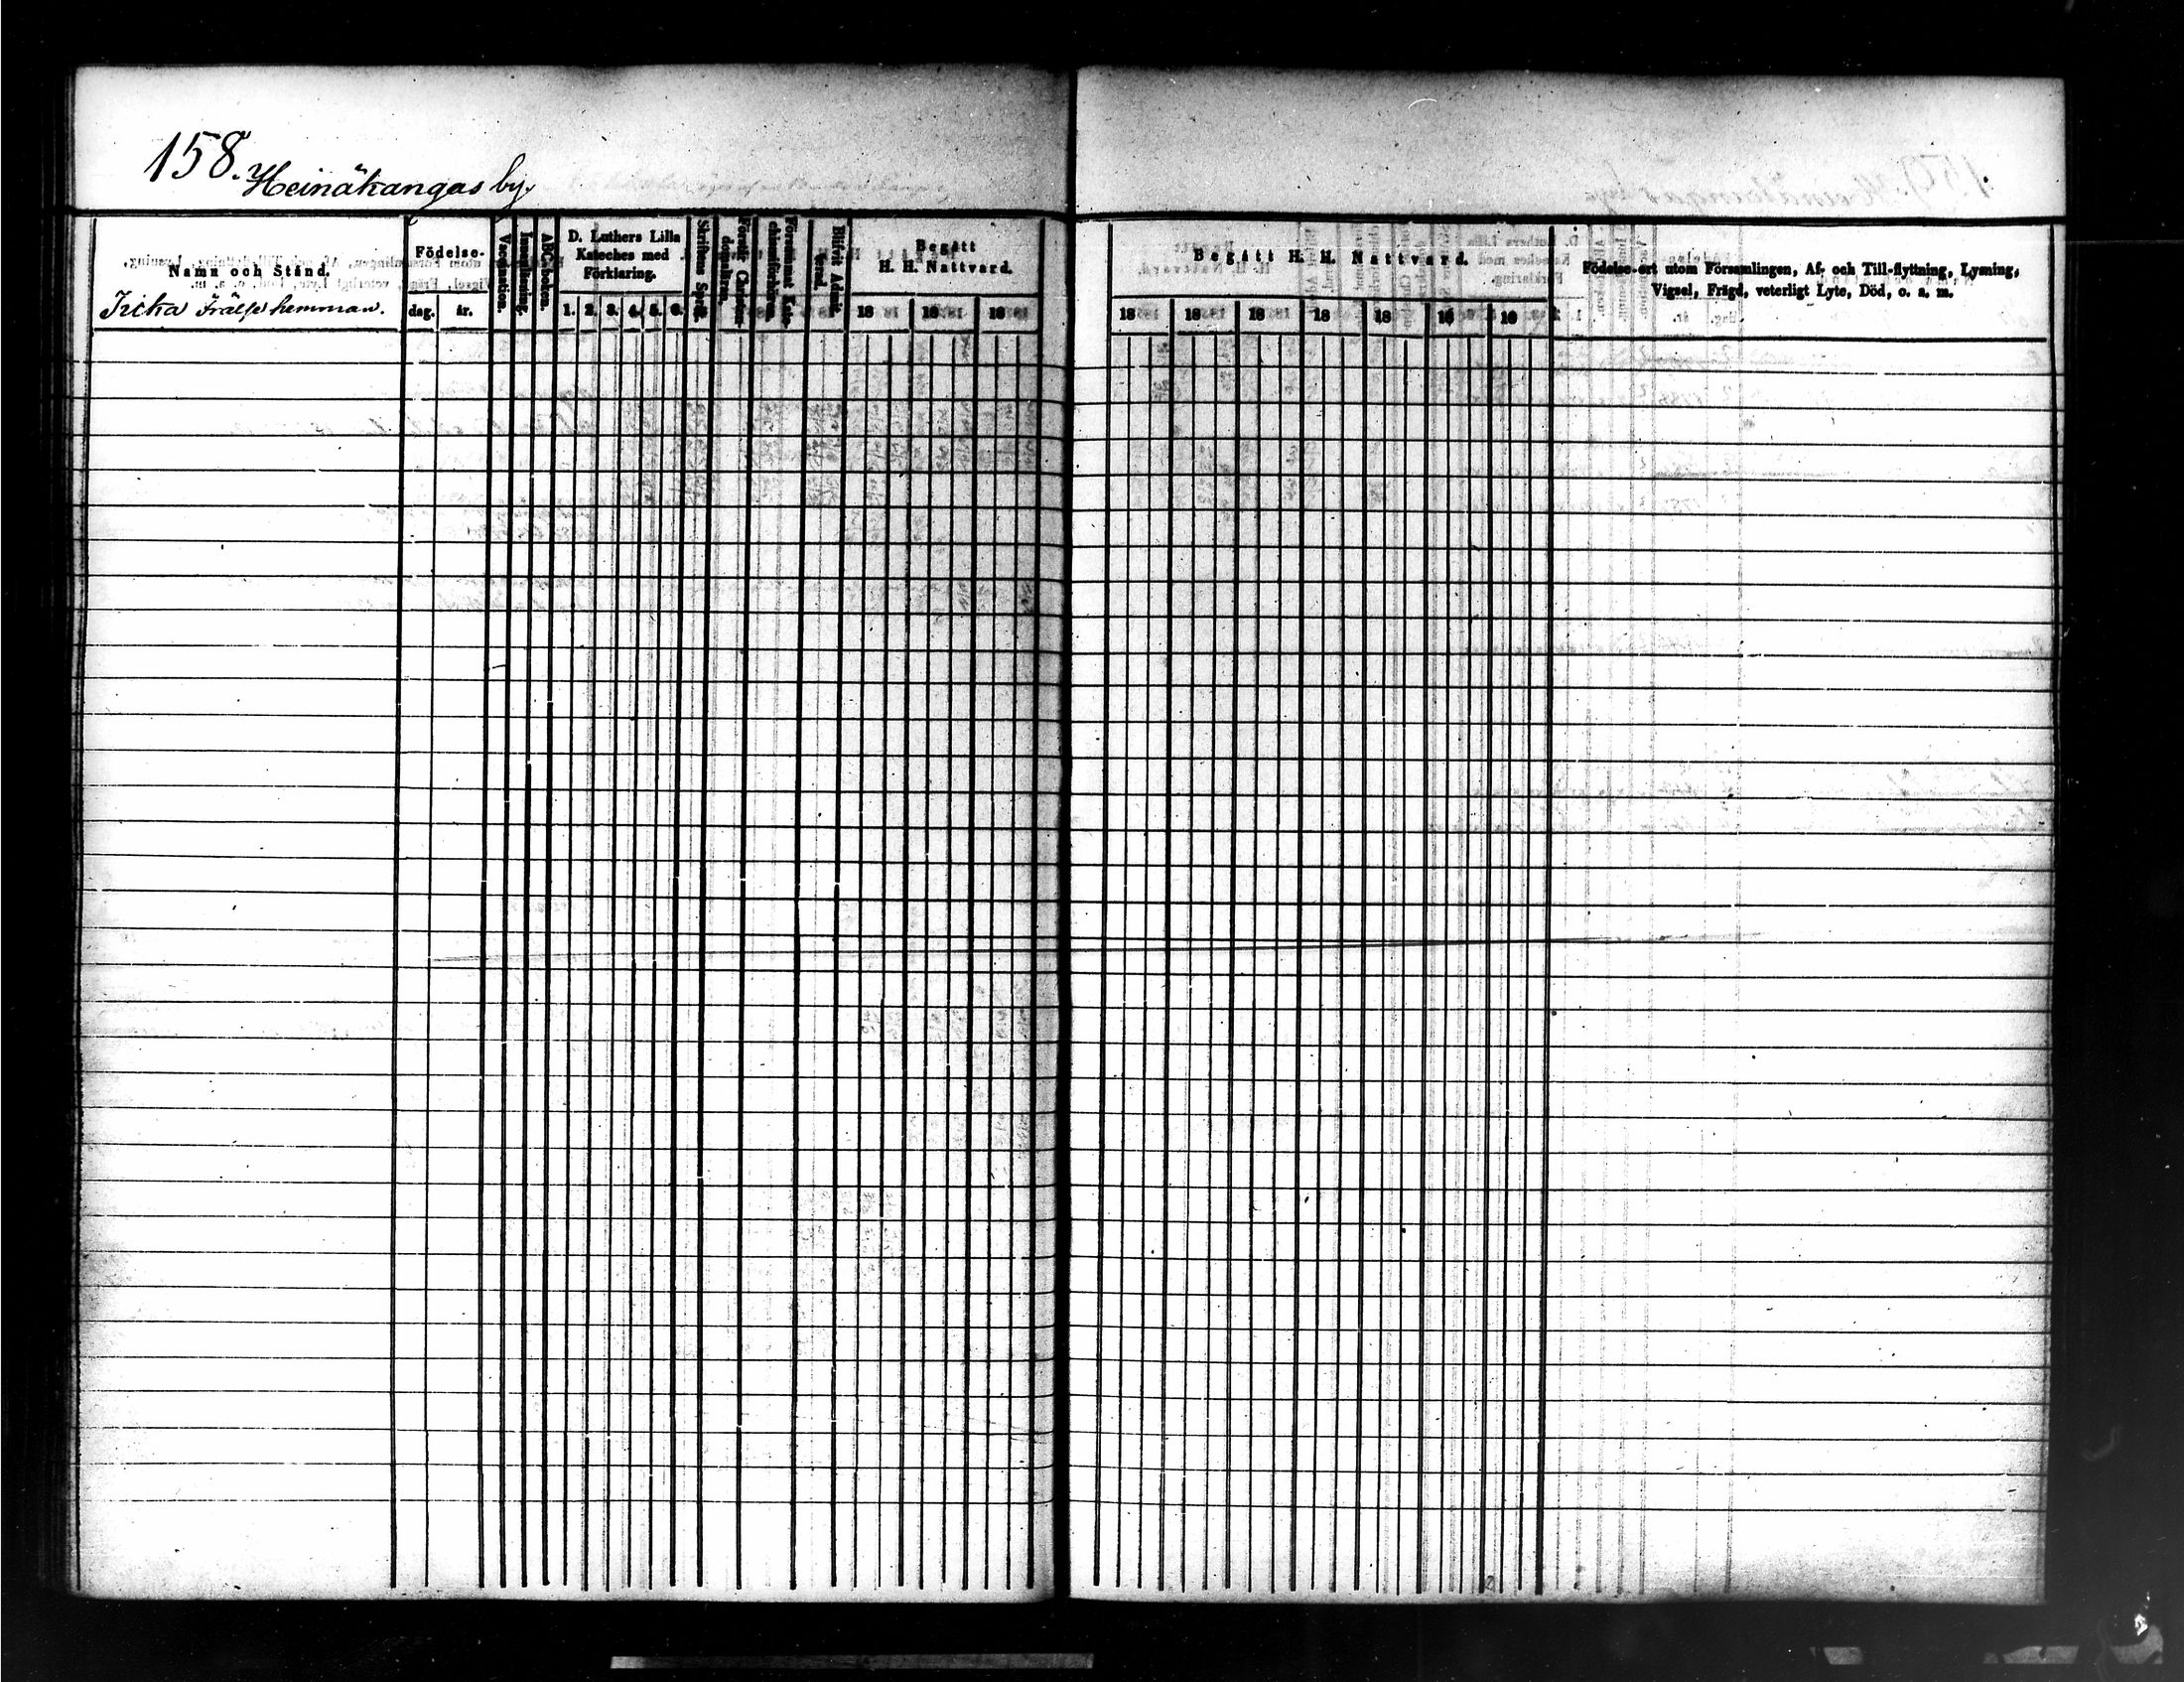 158. Heinäkangas by.
Namn och Stånd.
Frälse hemman.
Födelse-
dag. år.
Vaccination.
Innanläsning.
ABC-boken.
D. Luthers Lilla
Kateches med
Förklaring.
1. 2. 3. 4. 5. 6.
Skriftens Språk.
Blifvit Admitterad.
Begått
H. H. Nattvard.
18 18 18
Begått H. H. Nattvard.
18 18 18 18 18 18 18
Födelse-ort utom Församlingen, Af- och Till-flyttning, Lysning,
Vigsel, Frägd, veterligt Lyte, Död, o. a. m.